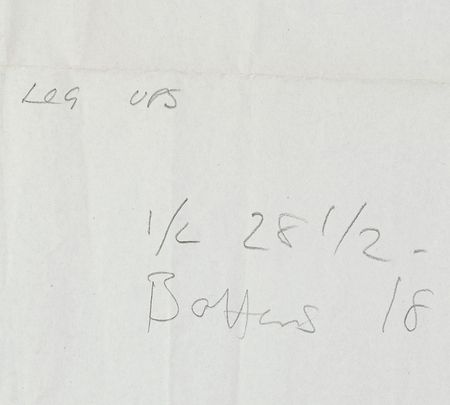 LEG UPS
1/L 28 1/2 -
Bottoms 18